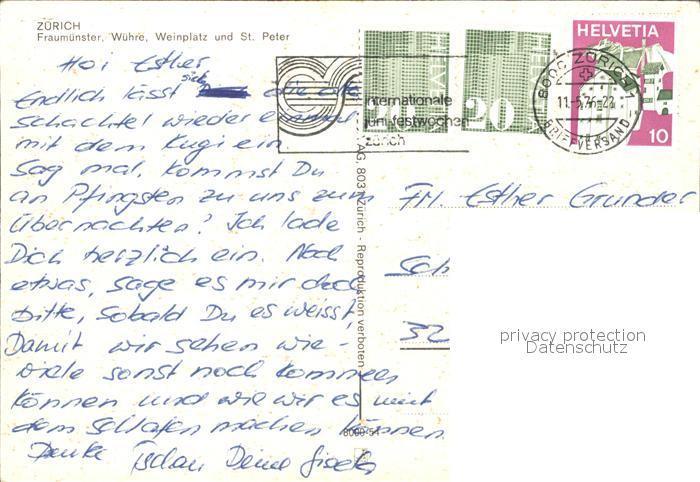 ZÜRICH
Fraumünster, Wühre, Weinplatz und St. Peter
Hoi Esther
Endlich lässt sich die alte
Schachtel wieder einmal
mit dem Kugi ein
Sag mal, kommst Du
an Pfingsten zu uns zum
übernachten? Ich lade
Dich herzlich ein. Noch
etwas, sage es mir doch
bitte, sobald Du es weisst!
Damit wir sehen wie-
viele sonst noch kommen
können und wie wir es mit
dem Schlafen machen können.
Danke Tschau Deine Gisela
AG, 803 Zürich - Reproduktion verboten
8000-54
HELVETIA
20
HELVETIA
10
internationale
juni-festwochen
zürich
8000 ZÜRICH 1
11.-5.76.-22
BRIEFVERSAND
Frl. Esther Grunder
Sch
32
privacy protection
Datenschutz